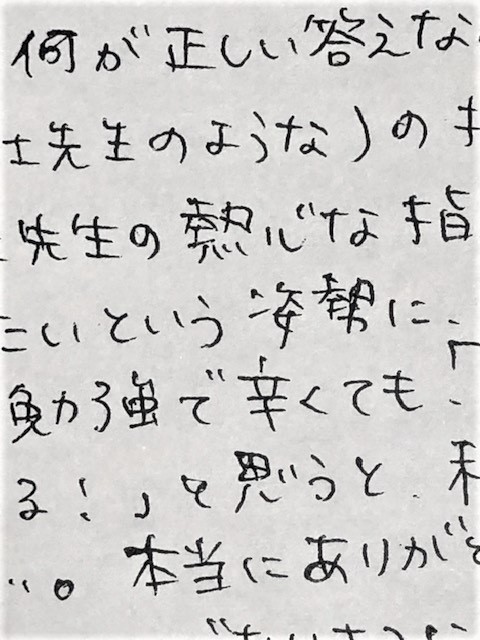 何が正しい答えな
士先生のような)の
先生の熱心な指
たいという姿勢に、
勉強で辛くても「
る！」と思うと、私
。本当にありがと